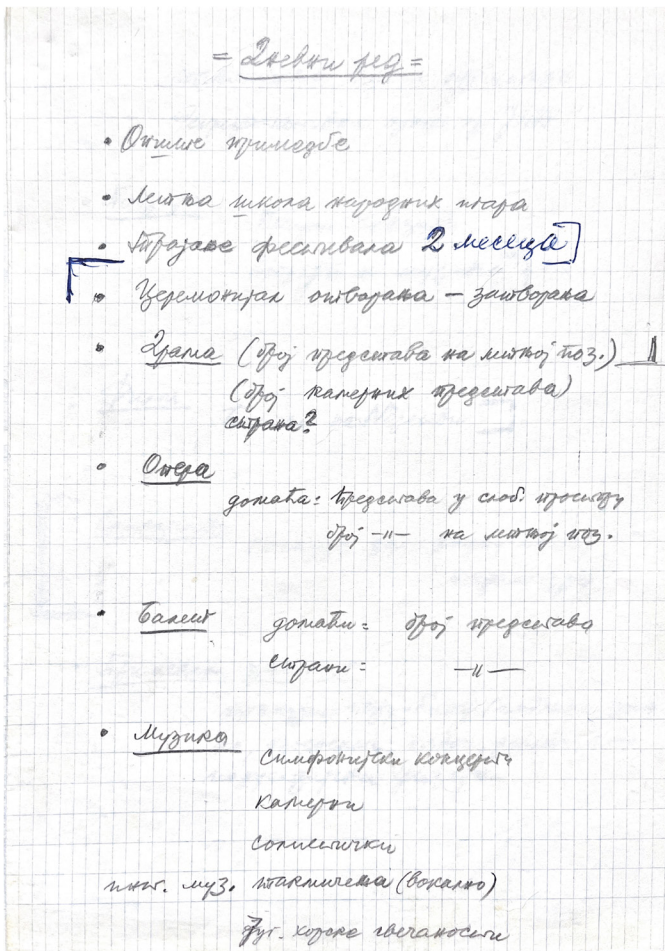 = Дневни ред =
• Опште примедбе
• Летња школа народних игара
• Трајање фестивала 2 месеца]
• Церемонијал отварања – затварања
• Драма (број представа на летњој поз.)
(број камерних представа)
страна?
• Опера
домаћа: Представа у слоб. простору
број -〃- на летњој поз.
• Балет домаћи = број представа
страни = -〃-
• Музика
симфонијски концерти
камерни
солистички
инт. муз. такмичења (вокално)
Југ. хорске свечаности